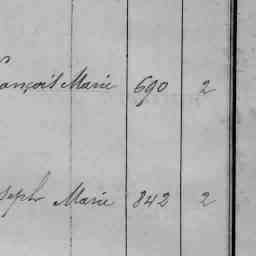 ançois Marie 690 2
seph Marie 842 2